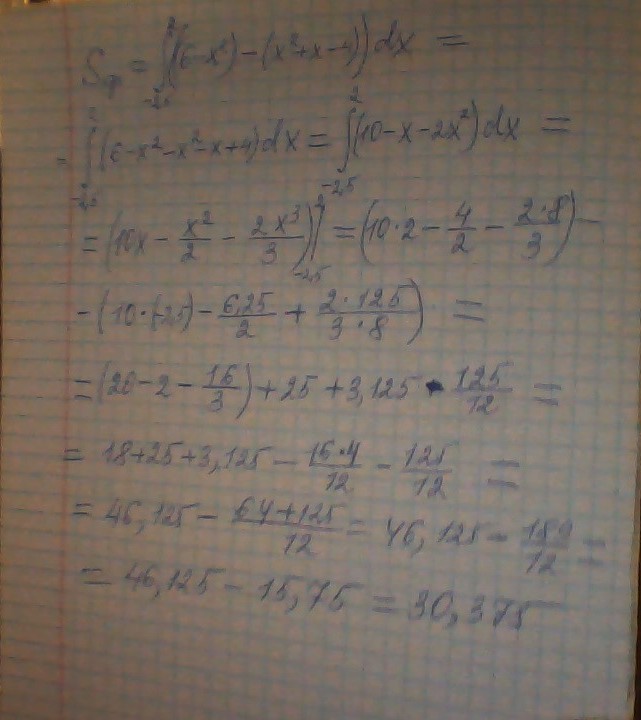 Sф = ∫₋₂,₅² ((6-x²) - (x²+x-4)) dx =
= ∫₋₂,₅² (6-x²-x²-x+4) dx = ∫₋₂,₅² (10-x-2x²) dx =
= (10x - x²/2 - 2x³/3)|₋₂,₅² = (10·2 - 4/2 - 2·8/3) -
- (10·(-2,5) - 6,25/2 + 2·125/3·8) =
= (20-2-16/3) + 25 + 3,125 - 125/12 =
= 18+25+3,125 - 16·4/12 - 125/12 =
= 46,125 - 64+125/12 = 46,125 - 189/12 =
= 46,125 - 15,75 = 30,375